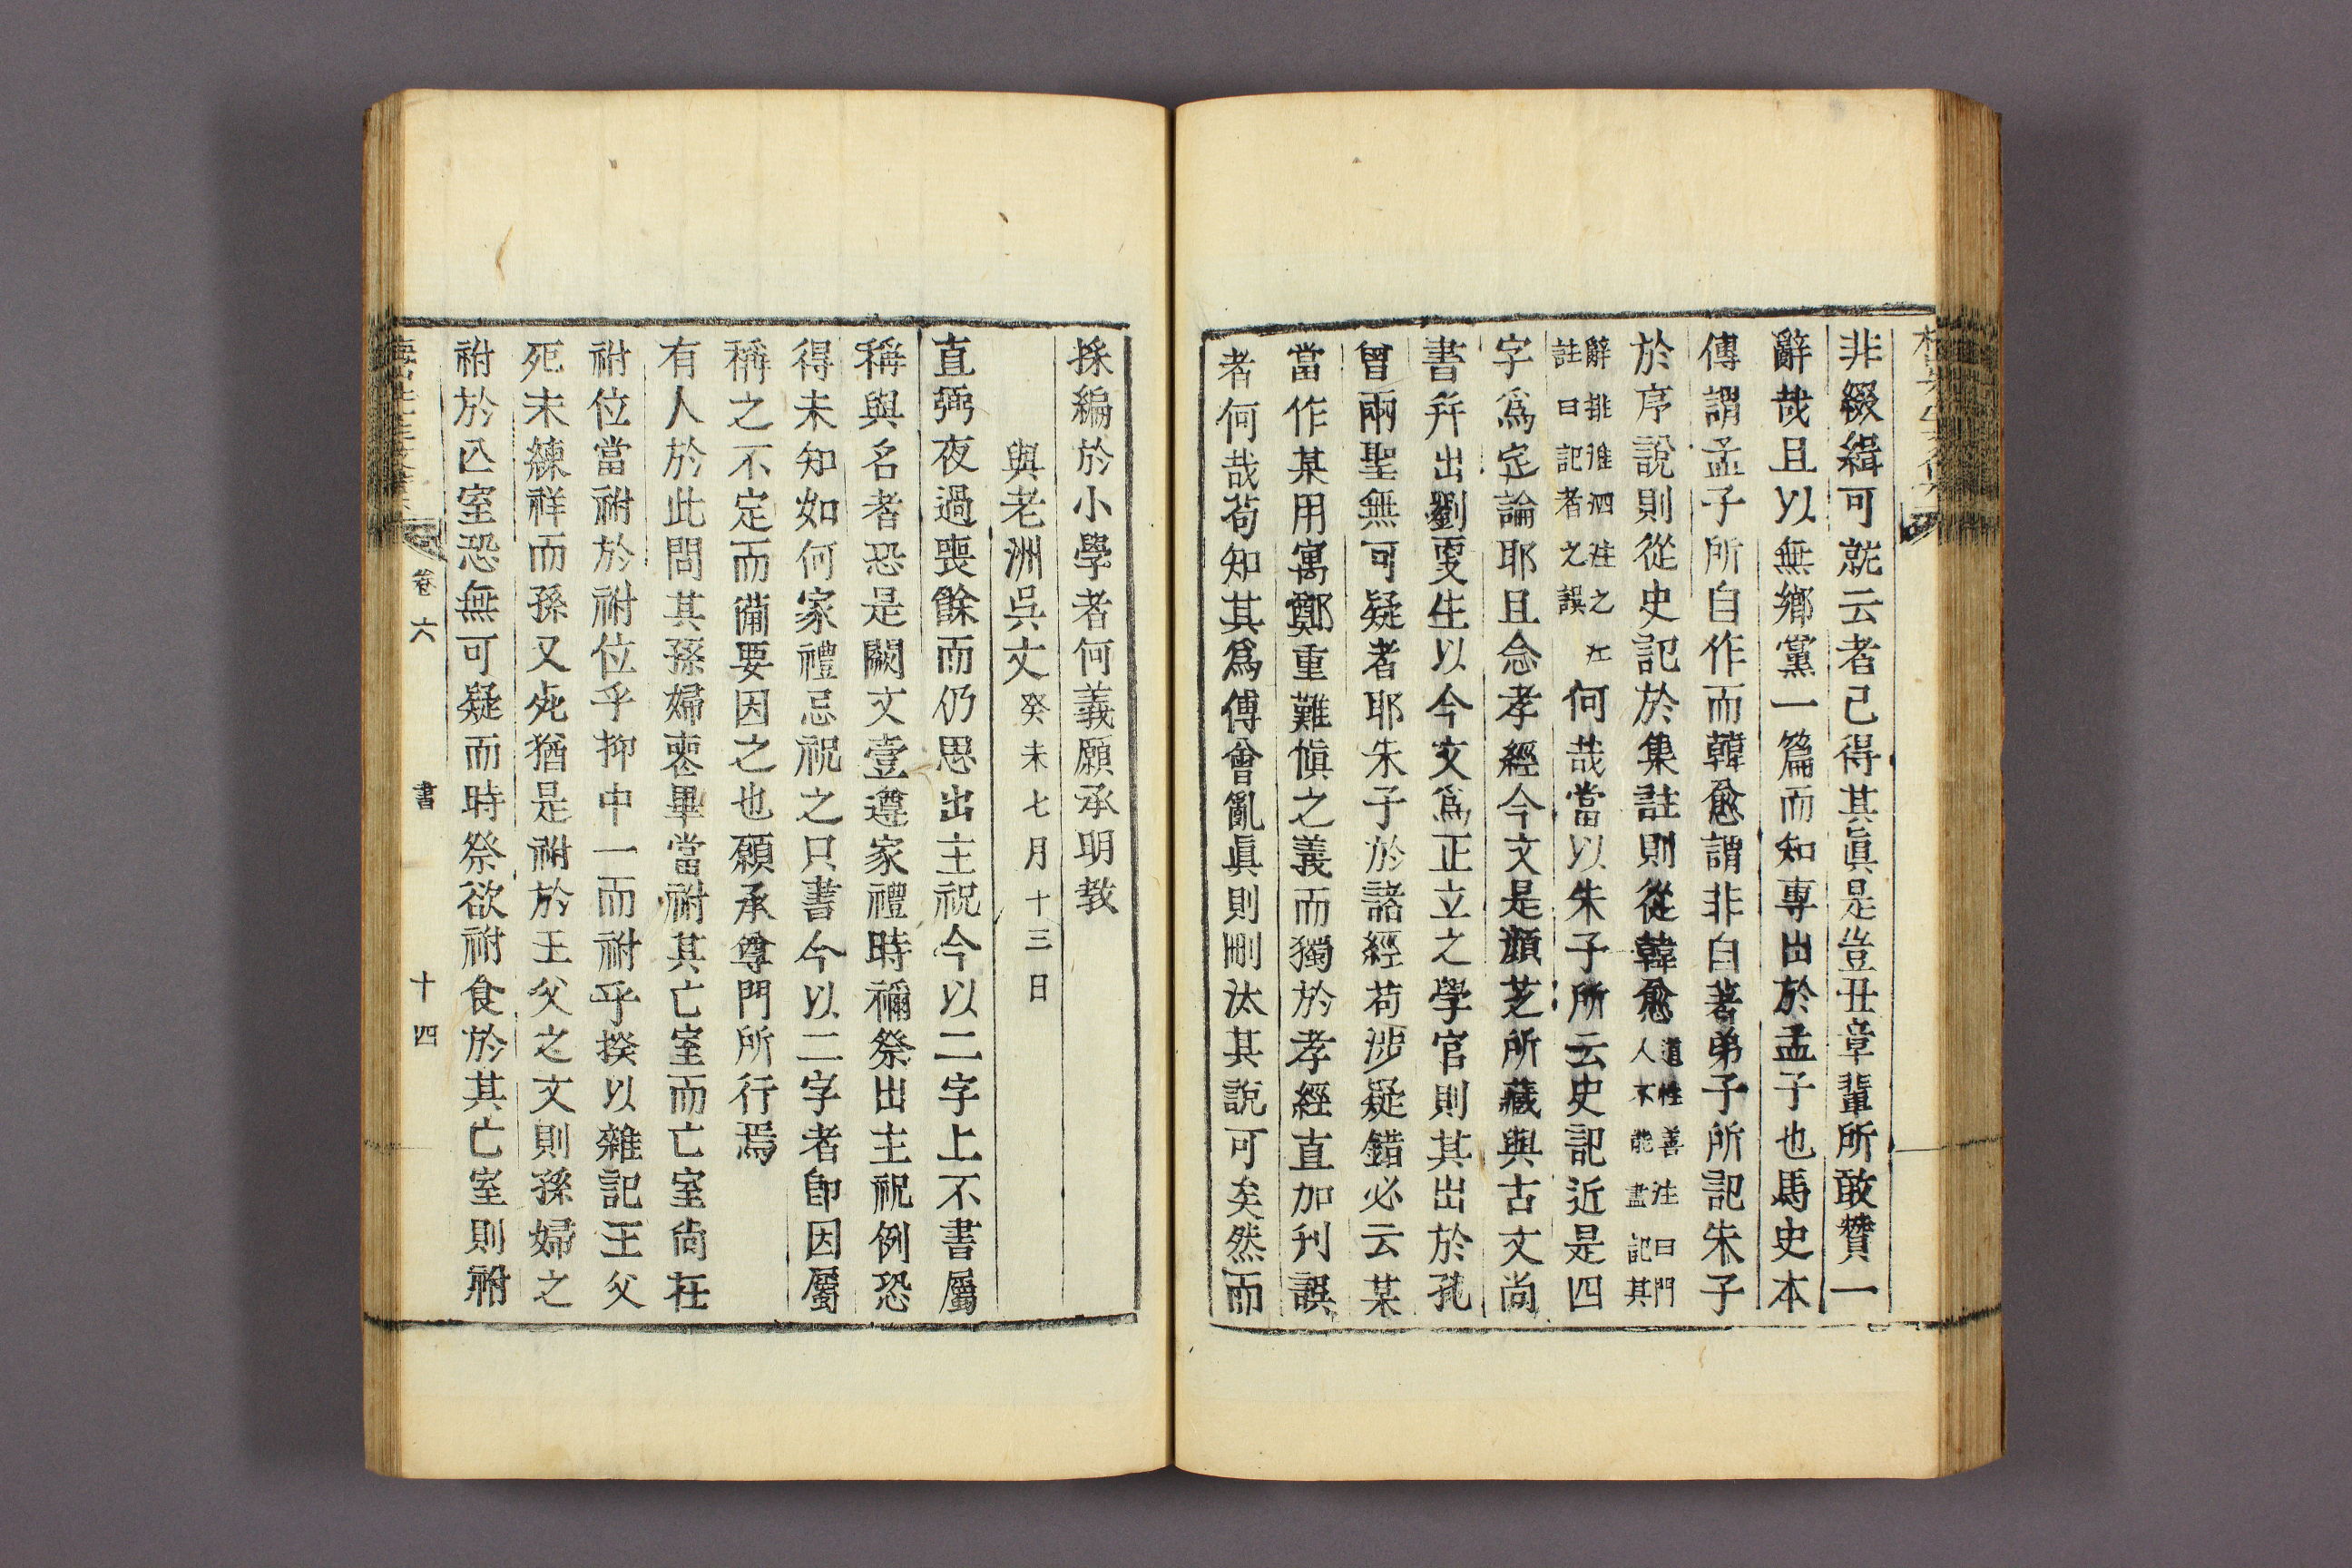 非綴緝可就云者已得其眞是豈丑章輩所敢贊一
辭哉且以無鄕黨一篇而知專出於孟子也馬史本
傳謂孟子所自作而韓愈謂非自著弟子所記朱子
於序說則從史記於集註則從韓愈道性善注曰門人不能盡記其
辭排淮泗注之江註曰記者之誤何哉當以朱子所云史記近是四
字爲定論耶且念孝經今文是顏芝所藏與古文尙
書幷出劉更生以今文爲正立之學官則其出於孔
曾兩聖無可疑者耶朱子於諸經苟涉疑錯必云某
當作某用寓鄭重難愼之義而獨於孝經直加刋誤
者何哉苟知其爲傅會亂眞則刪汰其說可矣然而
採編於小學者何義願承明敎
與老洲吳丈癸未七月十三日
直弼夜過喪餘而仍思出主祝今以二字上不書屬
稱與名者恐是闕文壹遵家禮時禰祭出主祝例恐
得未知如何家禮忌祝之只書今以二字者卽因屬
稱之不定而備要因之也願承尊門所行焉
有人於此問其孫婦喪畢當祔其亡室而亡室尙在
祔位當祔於祔位乎抑中一而祔乎揆以雜記王父
死未練祥而孫又死猶是祔於王父之文則孫婦之
祔於亡室恐無可疑而時祭欲祔食於其亡室則祔
卷六
書
十四